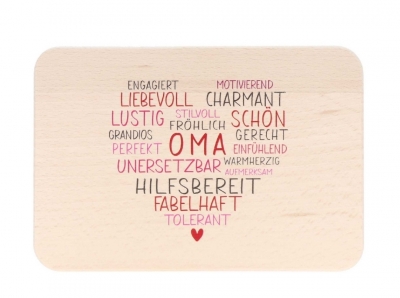 ENGAGIERT MOTIVIEREND
LIEBEVOLL CHARMANT
LUSTIG STILVOLL SCHÖN
GRANDIOS FRÖHLICH GERECHT
PERFEKT OMA EINFÜHLEND
UNERSETZBAR WARMHERZIG
AUFMERKSAM
HILFSBEREIT
FABELHAFT
TOLERANT